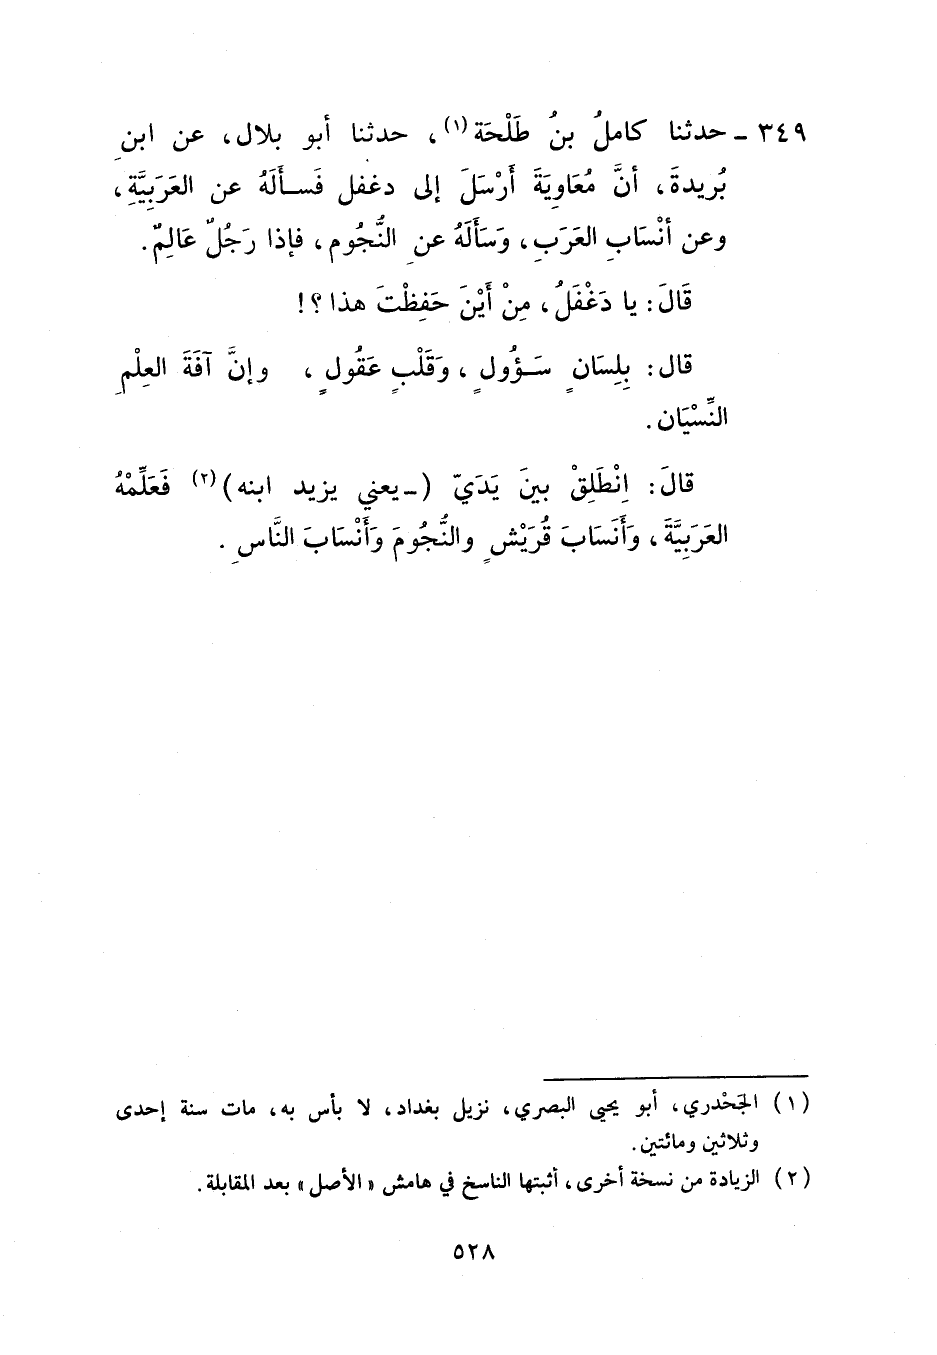 ٣٤٩ ـ حدثنا كاملُ بنُ طَلْحَة (١)، حدثنا أبو بلال، عن ابنِ
بُريدةَ، أنَّ مُعَاوِيَةَ أَرْسَلَ إلى دغفل فَسـأَلَهُ عن العَرَبِيَّةِ،
وعن أنْسَابِ العَرَبِ، وَسَأَلَهُ عن النُّجُومِ، فإذا رَجُلٌ عَالِمٌ.
قَالَ: يا دَغْفَلُ، مِنْ أَيْنَ حَفِظْتَ هذا ؟!
قال: بِلِسَانٍ سَـؤُولٍ، وَقَلْبٍ عَقُولٍ، وإنَّ آفَةَ العِلْمِ
النِّسْيَان.
قالَ: اِنْطَلِقْ بينَ يَدَيّ (ـ يعني يزيد ابنه) (٢) فَعَلِّمْهُ
العَرَبِيَّةَ، وَأَنَسَابَ قُرَيْشٍ والنُّجُومَ وَأَنْسَابَ النَّاسِ.
(١) الجَحْدري، أبو يحيى البصري، نزيل بغداد، لا بأس به، مات سنة إحدى
وثلاثين ومائتين.
(٢) الزيادة من نسخة أخرى، أثبتها الناسخ في هامش «الأصل» بعد المقابلة.
٥٢٨